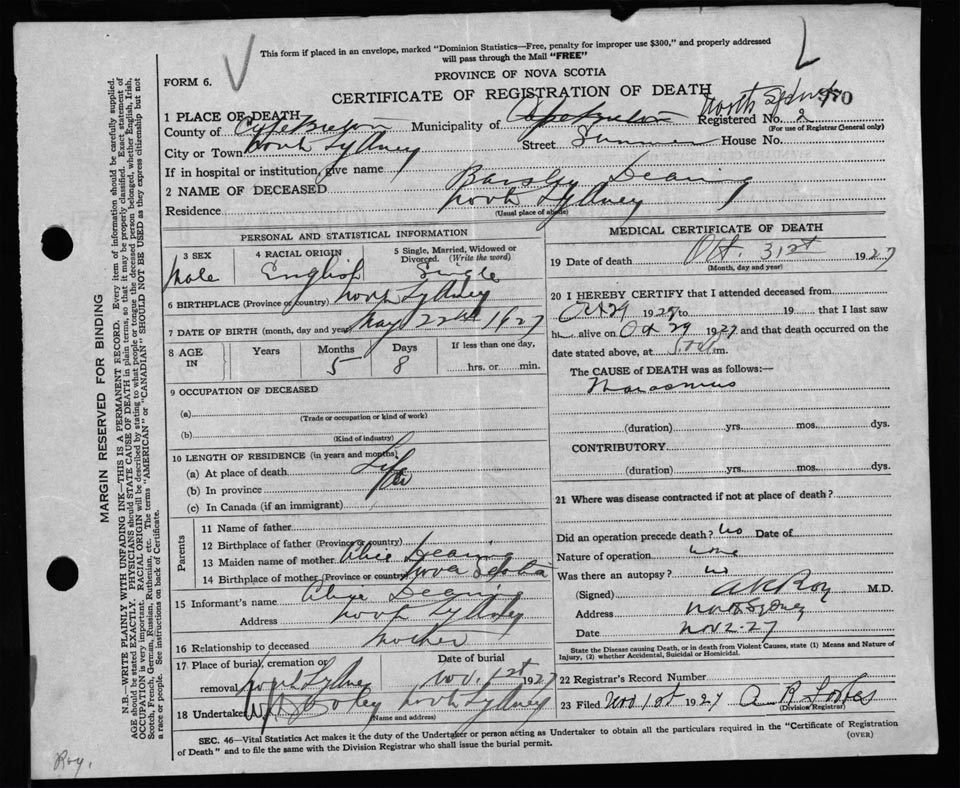 This form if placed in an envelope, marked "Dominion Statistics—Free, penalty for improper use $300," and properly addressed
will pass through the Mail "FREE"
FORM 6.
PROVINCE OF NOVA SCOTIA
CERTIFICATE OF REGISTRATION OF DEATH
North Sydney
1 PLACE OF DEATH
Registered No. 2
(For use of Registrar General only)
County of Cape Breton Municipality of Cape Breton
City or Town North Sydney Street House No.
If in hospital or institution, give name
2 NAME OF DECEASED Dearing
Residence North Sydney
(Usual place of abode)
PERSONAL AND STATISTICAL INFORMATION
3 SEX 4 RACIAL ORIGIN 5 Single, Married, Widowed or Divorced. (Write the word)
Male English Single
6 BIRTHPLACE (Province or country) North Sydney
7 DATE OF BIRTH (month, day and year) May 22nd 1927
8 AGE IN Years Months Days If less than one day,
5 8 hrs. or min.
9 OCCUPATION OF DECEASED
(a)
(Trade or occupation or kind of work)
(b)
(Kind of industry)
10 LENGTH OF RESIDENCE (in years and months)
(a) At place of death Life
(b) In province
(c) In Canada (if an immigrant)
Parents
11 Name of father
12 Birthplace of father (Province or country)
13 Maiden name of mother Dearing
14 Birthplace of mother (Province or country) Nova Scotia
15 Informant's name
Address North Sydney
16 Relationship to deceased Mother
17 Place of burial, cremation or removal North Sydney
Date of burial Nov. 1st 1927
18 Undertaker North Sydney
(Name and address)
MEDICAL CERTIFICATE OF DEATH
19 Date of death Oct. 31st 1927
(Month, day and year)
20 I HEREBY CERTIFY that I attended deceased from
Oct 29 1927 to 19 that I last saw
h alive on Oct 29 1927 and that death occurred on the
date stated above, at m.
The CAUSE of DEATH was as follows:—
Marasmus
(duration) yrs. mos. dys.
CONTRIBUTORY
(duration) yrs. mos. dys.
21 Where was disease contracted if not at place of death?
Did an operation precede death? no Date of
Nature of operation none
Was there an autopsy? no
(Signed) Roy M.D.
Address North Sydney
Date Nov 2-27
State the Disease causing Death, or in death from Violent Causes, state (1) Means and Nature of
Injury, (2) whether Accidental, Suicidal or Homicidal.
22 Registrar's Record Number
23 Filed Nov 1st 1927
(Division Registrar)
SEC. 46—Vital Statistics Act makes it the duty of the Undertaker or person acting as Undertaker to obtain all the particulars required in the "Certificate of Registration
of Death" and to file the same with the Division Registrar who shall issue the burial permit.
(OVER)
MARGIN RESERVED FOR BINDING
N.B.—WRITE PLAINLY WITH UNFADING INK—THIS IS A PERMANENT RECORD. Every item of information should be carefully supplied.
AGE should be stated EXACTLY. PHYSICIANS should STATE CAUSE OF DEATH in plain terms, so that it may be properly classified. Exact statement of
OCCUPATION is very important. RACIAL ORIGIN will be described by stating to what people or tongue the deceased person belonged, whether English, Irish,
Scotch, French, German, Russian, Ruthenian, etc. The terms "AMERICAN" or "CANADIAN" SHOULD NOT BE USED as they express citizenship but not
a race or people. See instructions on back of Certificate.
Roy.